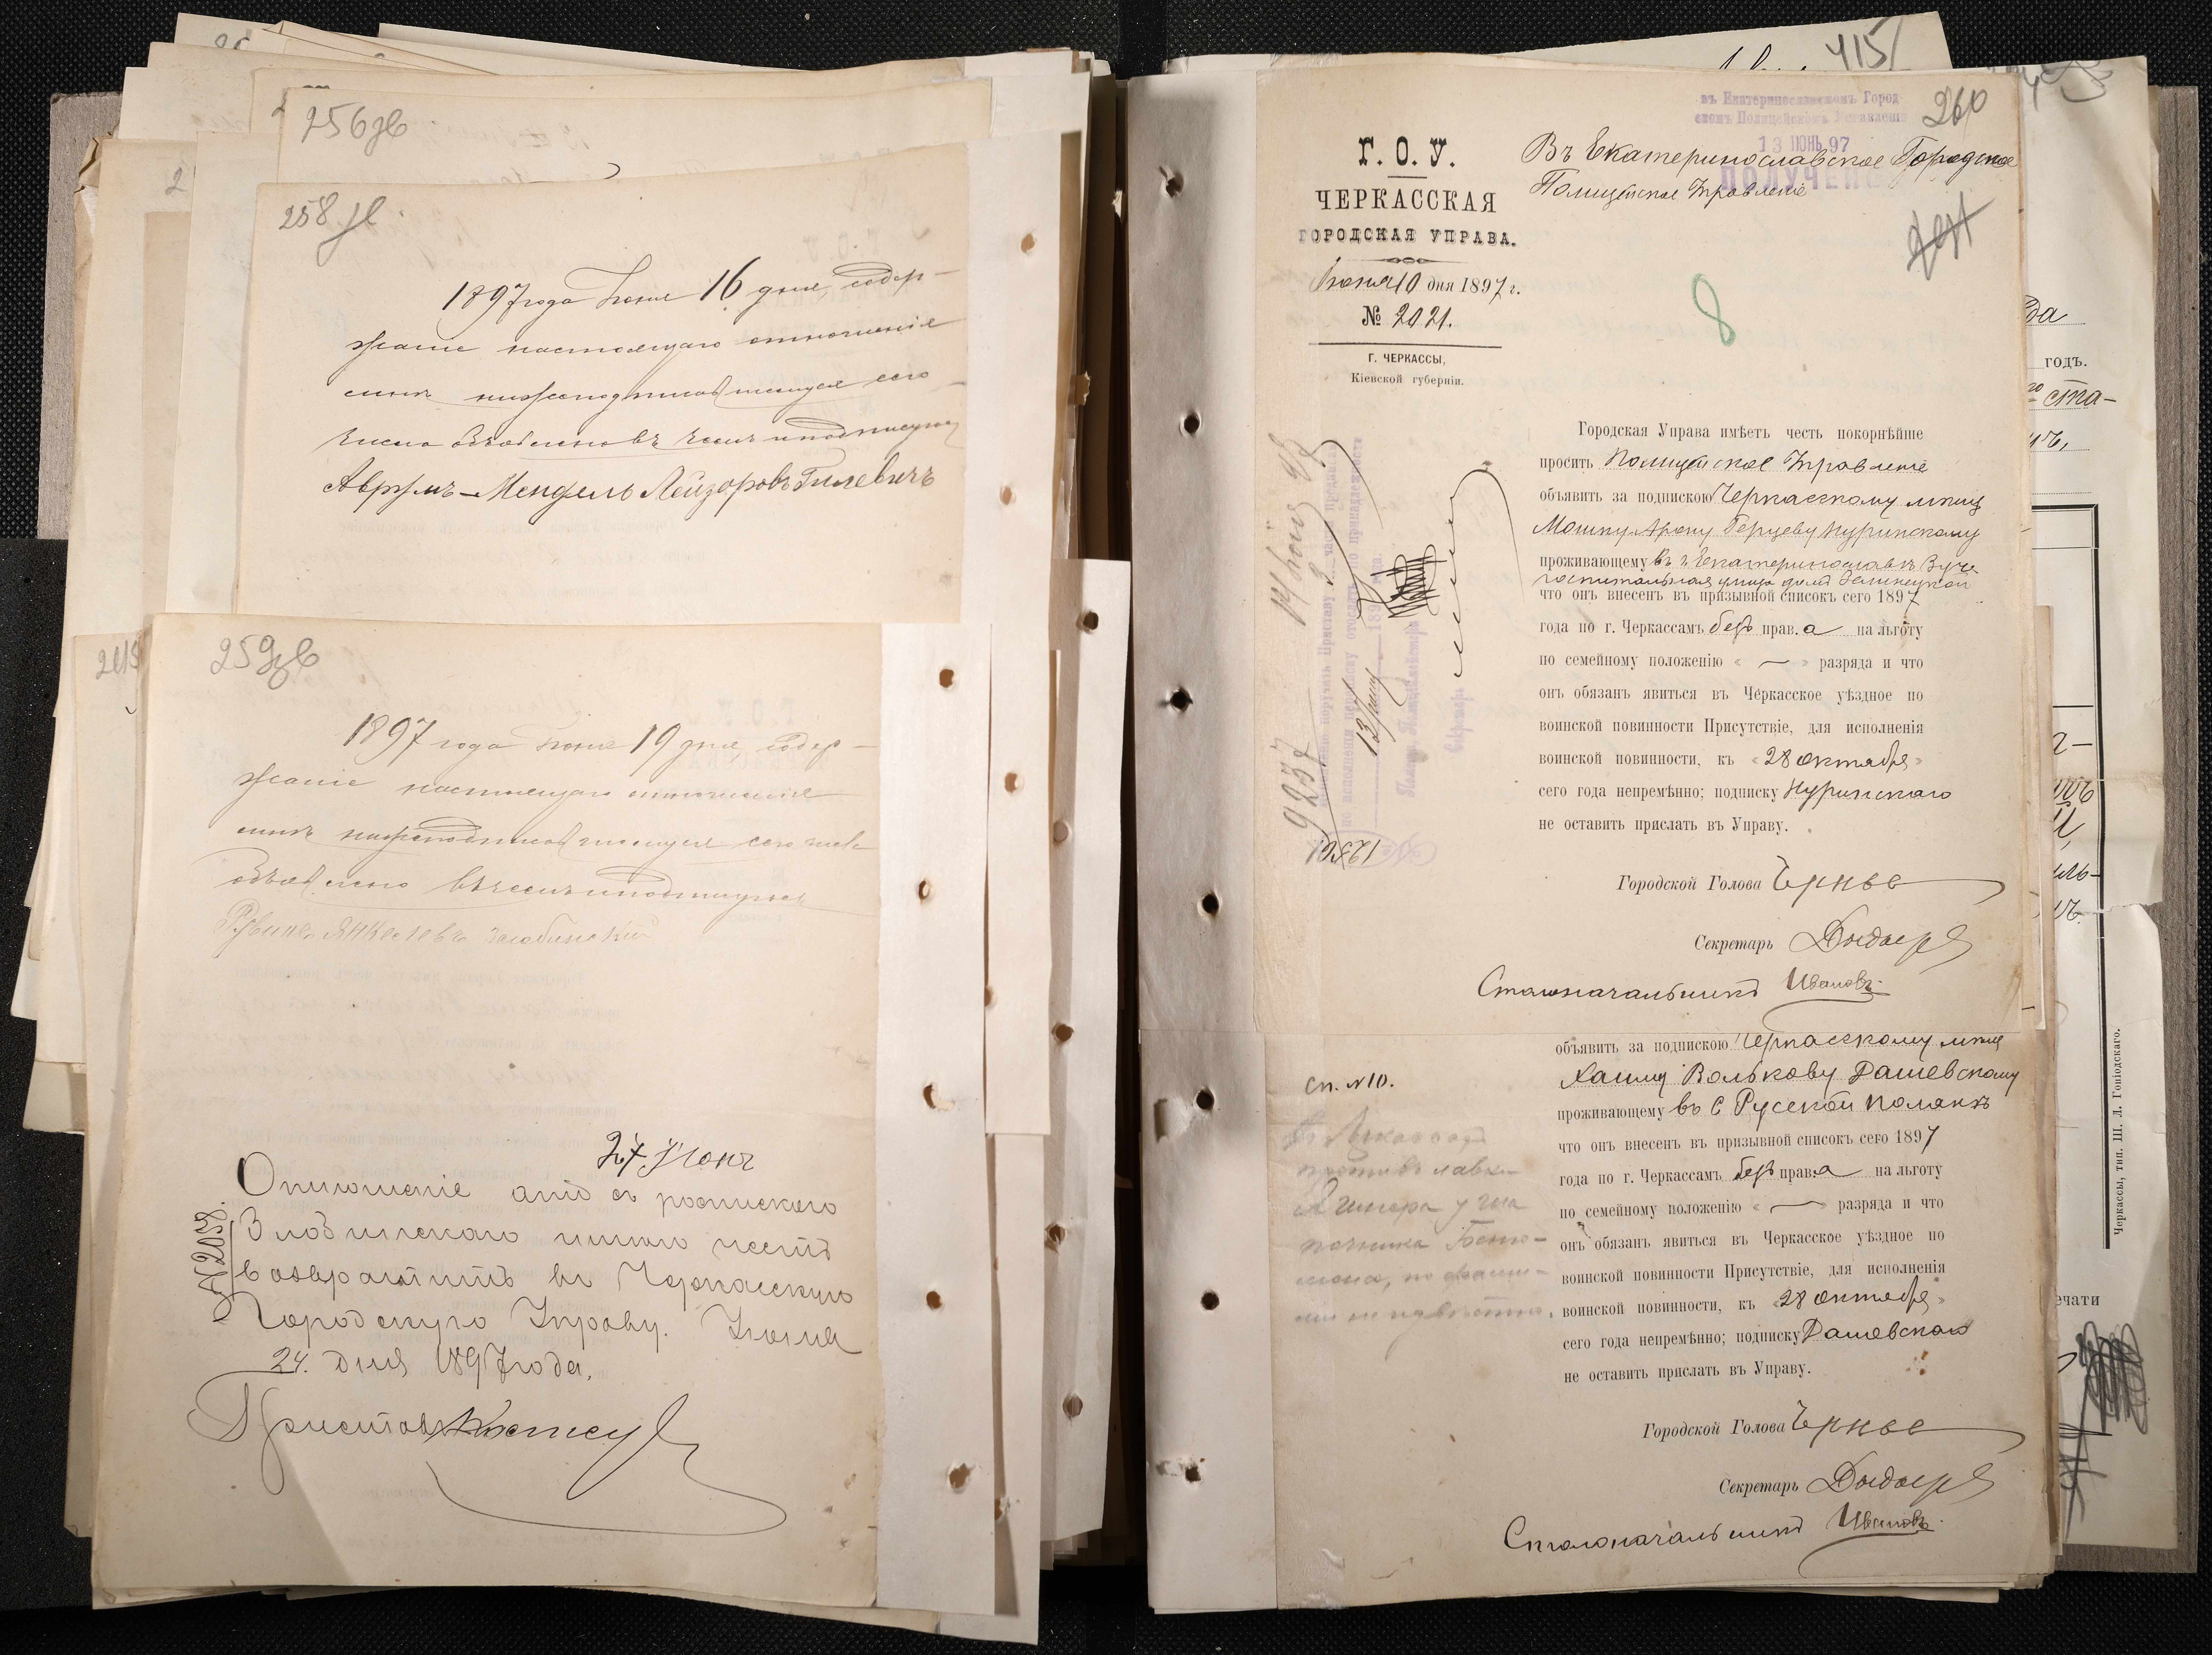 256 об
258 об.
1897 года Июня 16 дня, содер-
жание настоящаго отношенія
мнѣ нижеподписавшемуся сего
числа объявлено въ чемъ и подписуюсь
Аврумъ-Мендель Лейзоровъ Гилевичъ
259 об
1897 года Июня 19 дня, содер-
жаніе настоящаго отношенія
мнѣ нижеподписавшемуся сего числа
объявлено въ чемъ и подписуюсь
Янкелевъ
27 Июня
Отношеніе это съ роспискою
Злобинскаго имѣю честь
возвратить въ Черкасскую
Городскую Управу. Июня
24. дня 1897 года.
№ 2058.
Приставъ
415
260
въ Екатеринославскомъ Город-
скомъ Полицейскомъ Управленіи
13 ИЮНЬ 97
ПОЛУЧЕНО
Г. О. У.
ЧЕРКАССКАЯ
ГОРОДСКАЯ УПРАВА.
Июня 10 дня 1897 г.
№ 2021.
Г. ЧЕРКАССЫ,
Кіевской губерніи.
Въ Екатеринославское Городское
Полицейское Управленіе
8
Городская Управа имѣетъ честь покорнѣйше
просить Полицейское Управленіе
объявить за подпискою Черкасскому мѣщ
Мошку Арону Герцеву Куринскому
проживающему въ г. Екатеринославѣ
госпитальная улица домъ
что онъ внесенъ въ призывной списокъ сего 1897
года по г. Черкассамъ безъ права на льготу
по семейному положенію « — » разряда и что
онъ обязанъ явиться въ Черкасское уѣздное по
воинской повинности Присутствіе, для исполненія
воинской повинности, къ « 28 октября »
сего года непремѣнно; подписку Куринскаго
не оставить прислать въ Управу.
Городской Голова
Секретарь
Столоначальникъ Ивановъ
9237
13 Июня
объявить за подпискою Черкасскому мѣщ
Хаиму Волькову Рашевскому
проживающему въ с Русской Полянѣ
что онъ внесенъ въ призывной списокъ сего 1897
года по г. Черкассамъ безъ права на льготу
по семейному положенію « — » разряда и что
онъ обязанъ явиться въ Черкасское уѣздное по
воинской повинности Присутствіе, для исполненія
воинской повинности, къ « 28 октября »
сего года непремѣнно; подписку Рашевскаго
не оставить прислать въ Управу.
Городской Голова
Секретарь
Столоначальникъ Ивановъ
Сп. № 10.
противъ лавки
годъ.
Черкассы, тип. Ш. Л. Гоніодскаго.